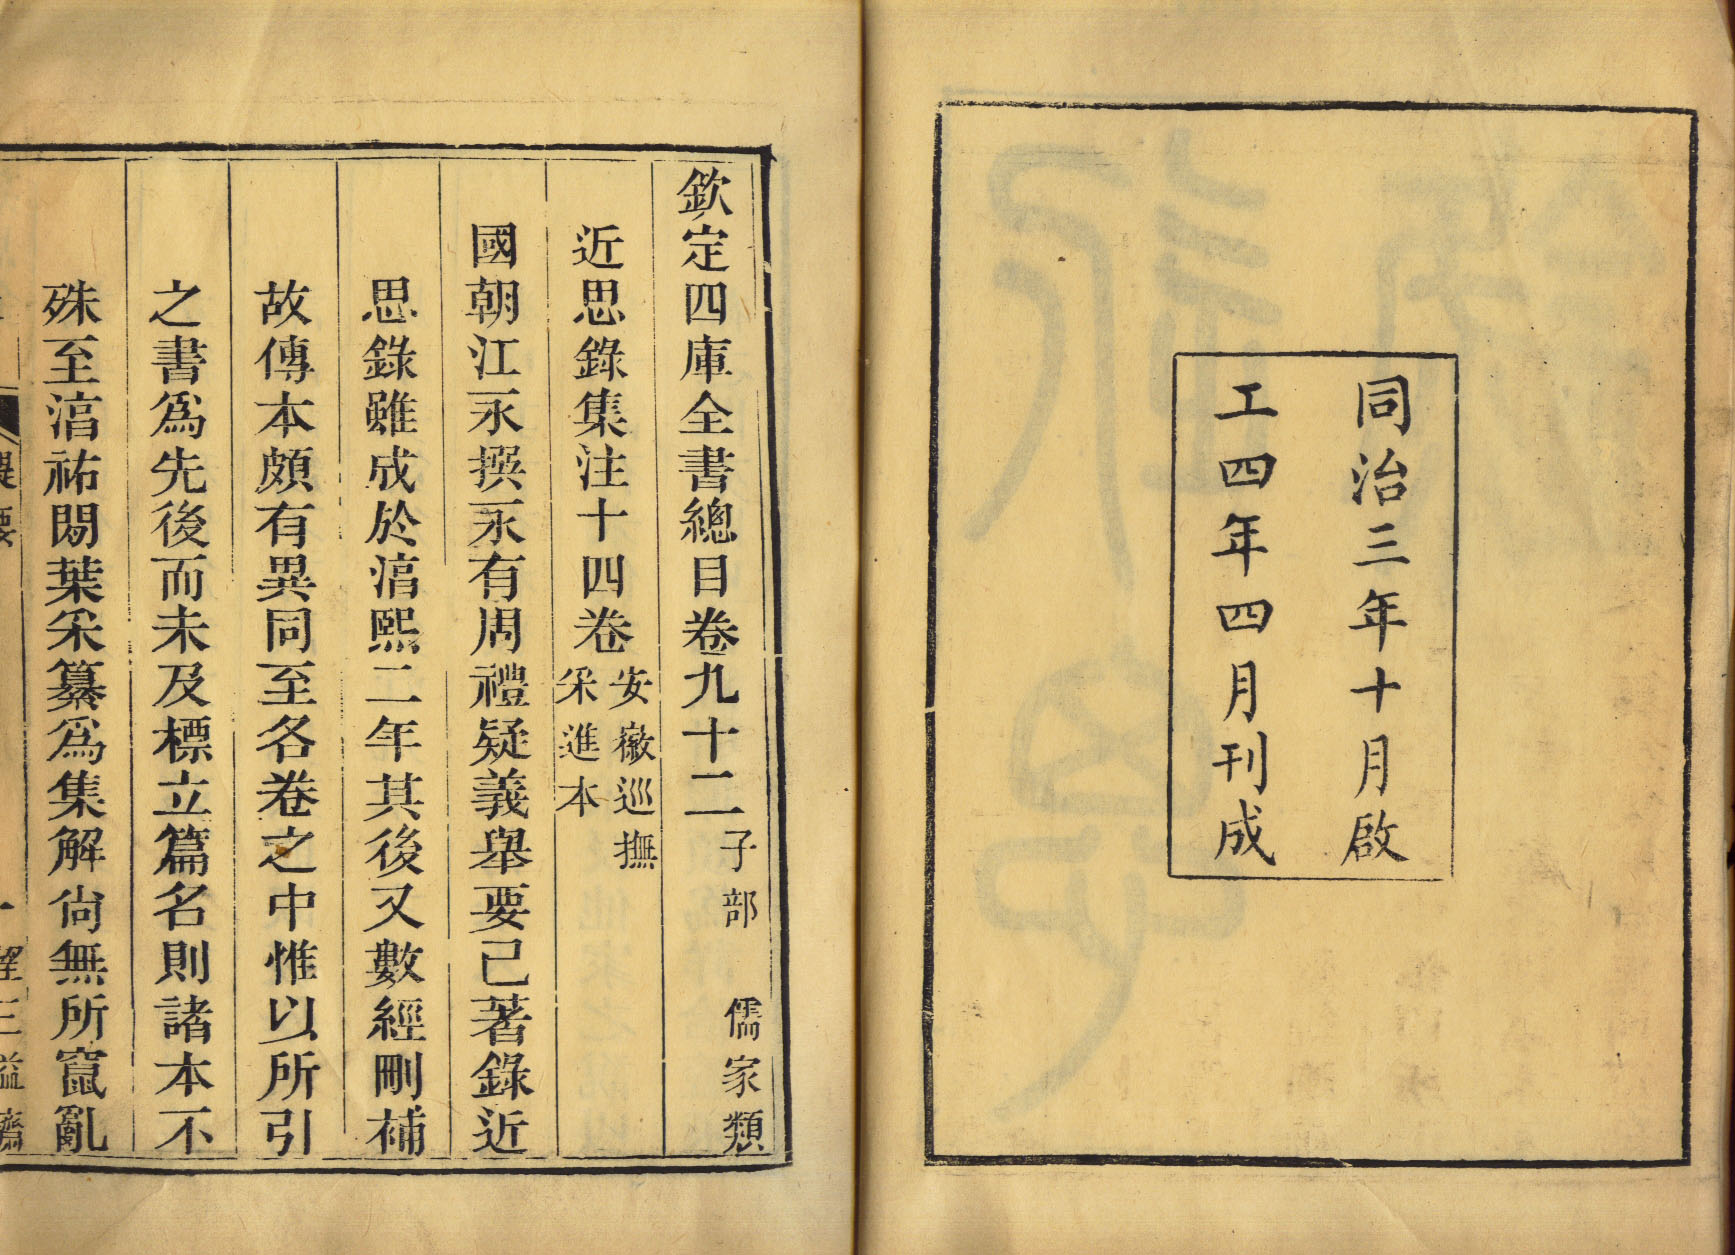 同治三年十月啟
工四年四月刊成
欽定四庫全書總目卷九十二子部 儒家類
近思錄集注十四卷安徽巡撫采進本
國朝江永撰永有周禮疑義舉要已著錄近
思錄雖成於湻熙二年其後又數經刪補
故傳本頗有異同至各卷之中惟以所引
之書為先後而未及標立篇名則諸本不
殊至湻祐閒葉采纂為集解尙無所竄亂
提要
一 望三益齋